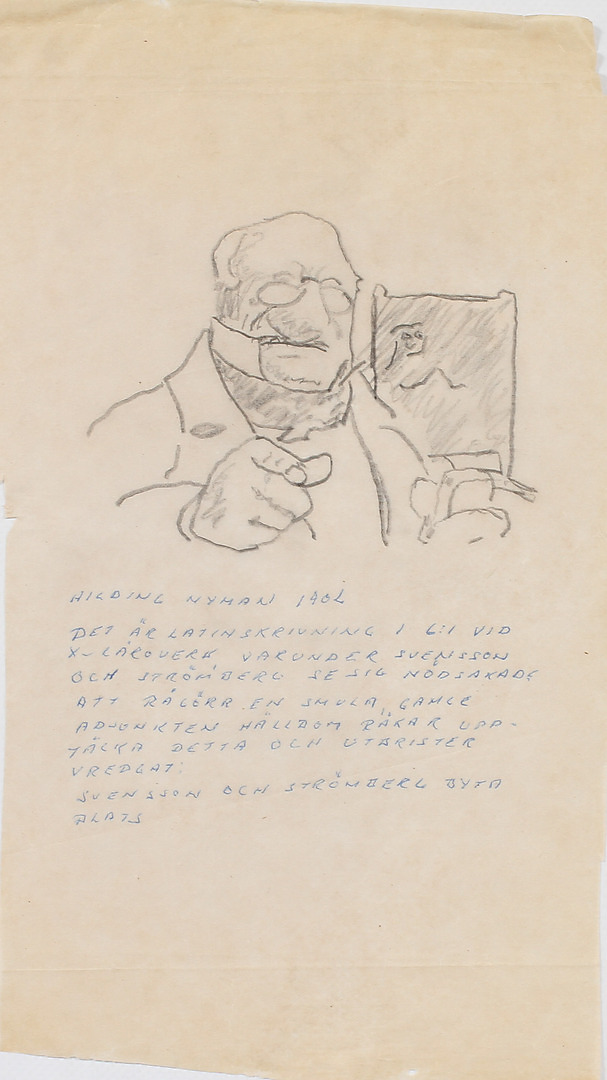 HILDING NYMAN 1902
DET ÄR LATINSKRIVNING I 6:1 VID
X-LÄROVERK VARUNDER SVENSSON
OCH STRÖMBERG SE SIG NÖDSAKADE
ATT RÅGÖRA EN SMULA, GAMLE
ADJUNKTEN HÄLLDOM RÅKAR UPP-
TÄCKA DETTA OCH UTBRISTER
VREDGAT:
SVENSSON OCH STRÖMBERG BYTA
PLATS